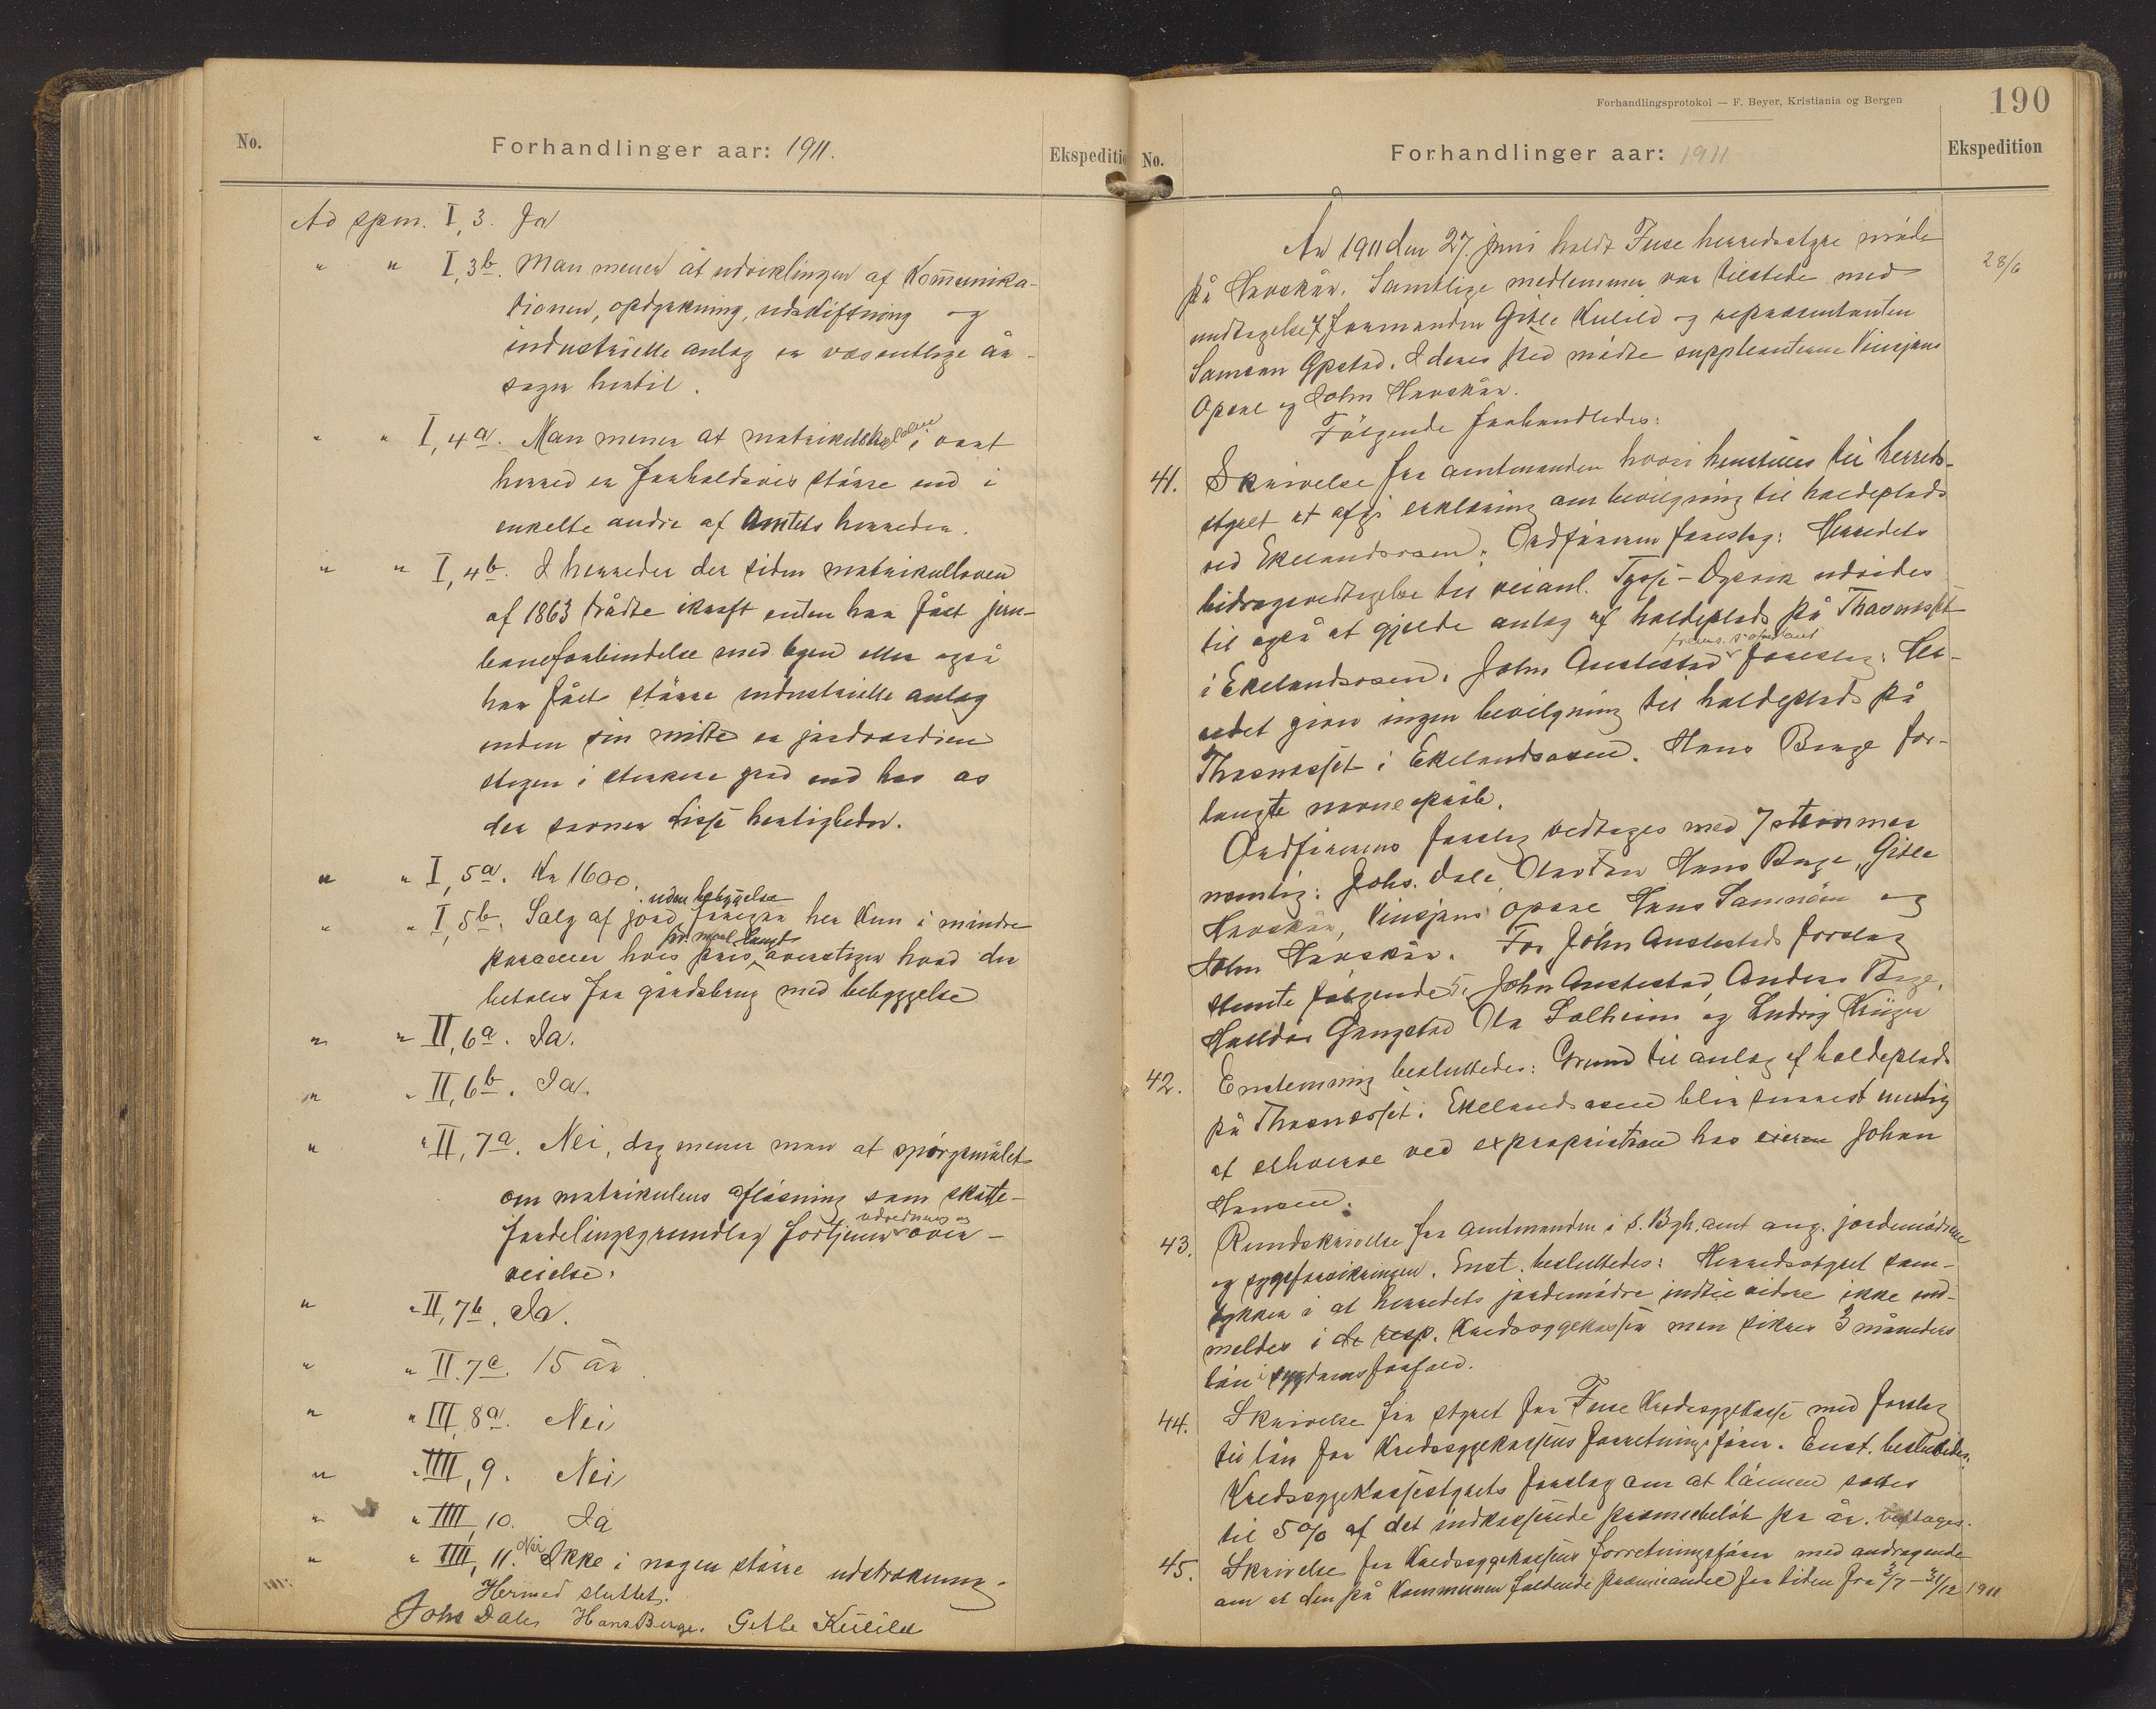 No.
Forhandlinger aar: 1911.
Ekspeditio
Ad spm. I, 3. Ja
" " I, 3b. Man mener at udviklingen af Kommunika-
tionen, opdyrkning, udskiftning og
industrielle anlæg er væsentlige år-
sager hertil.
" " I, 4a. Man mener at matrikelskylden i vort
herred er forholdsvis större end i
enkelte andre af Amtets herreder.
" " I, 4b. I herreder der siden matrikulloven
af 1863 trådte ikraft enten har fået jern-
baneforbindelse med byen eller også
har fået större industrielle anlæg
inden sin midte er jordværdien
stegen i sterkere grad end hos os
der savner disse herligheder.
" " I, 5a. Kr 1600.
uden bebyggelse
" " I, 5b. Salg af jord foregår her kun i mindre
pr. maal langt
parceller hvis pris overstiger hvad der
betales for gårdsbrug med bebyggelse
" " II, 6a. Ja.
" " II, 6b. Ja.
" " II, 7a. Nei, dog mener man at spörgsmålet
om matrikulens aflösning som skatte-
udredning og
fordelingsgrundlag fortjener over-
veielse.
" " II, 7b. Ja.
" " II, 7c. 15 år
" " III, 8a. Nei
" " IIII, 9. Nei
" " IIII, 10. Ja
" " IIII, 11. Nei Ikke i nogen större udstrækning.
Hermed sluttet.
Johs Dale, Hans Berge. Gitle Kulild
Forhandlingsprotokol — F. Beyer, Kristiania og Bergen
190
No.
Forhandlinger aar: 1911
Ekspedition
År 1911 den 27. juni holdt Fuse herredsstyre möde
28/6
på Havskår. Samtlige medlemmer var tilstede med
undtagelse af formanden Gitle Kulild og repræsentanten
Samson Gjestad. I deres sted mödte suppleanterne Vinsjans
Opsal og John Havskår.
Fölgende forhandledes:
41. Skrivelse fra amtmanden hvori henstilles til herreds-
styret at afgi erklæring om bevilgning til holdeplads
ved Ekelandsosen. Ordförerens forslag: Herredets
bidragsvedtagelse til veianl. Tysse-Gjesvik udvides
til også at gjelde anlæg af holdeplads på Thorsnesset
i Ekelandsosen. John Austestad forslag: Her-
redet giver ingen bevilgning til holdeplads på
Thorsnesset i Ekelandsosen. Hans Berge for-
langte navneopråb.
Ordförerens forslag vedtages med 7 stemmer
nemlig: Johs. Dale, Hans Berge, Gitle
Havskår, Vinsjans Opsal Hans Samnöen og
John Havskår. For John Austestads forslag
stemte fölgende 5. John Austestad, Anders Berge,
Halldor Gangstad Ola Solheim og Ludvig Krüger
42. Enstemmig besluttedes: Grund til anlæg af holdeplads
på Thorsnesset i Ekelandsosen blir snarest mulig
at erhverve ved expropriation hos eieren Johan
Hansen.
43. Rundskrivelse fra amtmanden i S. Bgh. amt ang. jordemödrene
og sygeforsikringen. Enst. besluttedes: Herredsstyret sam-
tykker i at herredets jordemödre indtil videre ikke ind-
meldes i de resp. kredssygekasser men sikres 3 måneders
lön i sygdomsforfald.
44. Skrivelse fra styret for Fuse kredssygekasse med forslag
til lön for kredssygekassens forretningsförer. Enst. besluttedes:
Kredssygekassestyrets forslag om at lönnen sættes
til 5% af det indkasserede præmiebelöb pr år. vedtages.
45. Skrivelse fra kredssygekassens forretningsförer med andragende
om at den på kommunen faldende præmieandel for tiden fra 3/7 - 31/12 1911